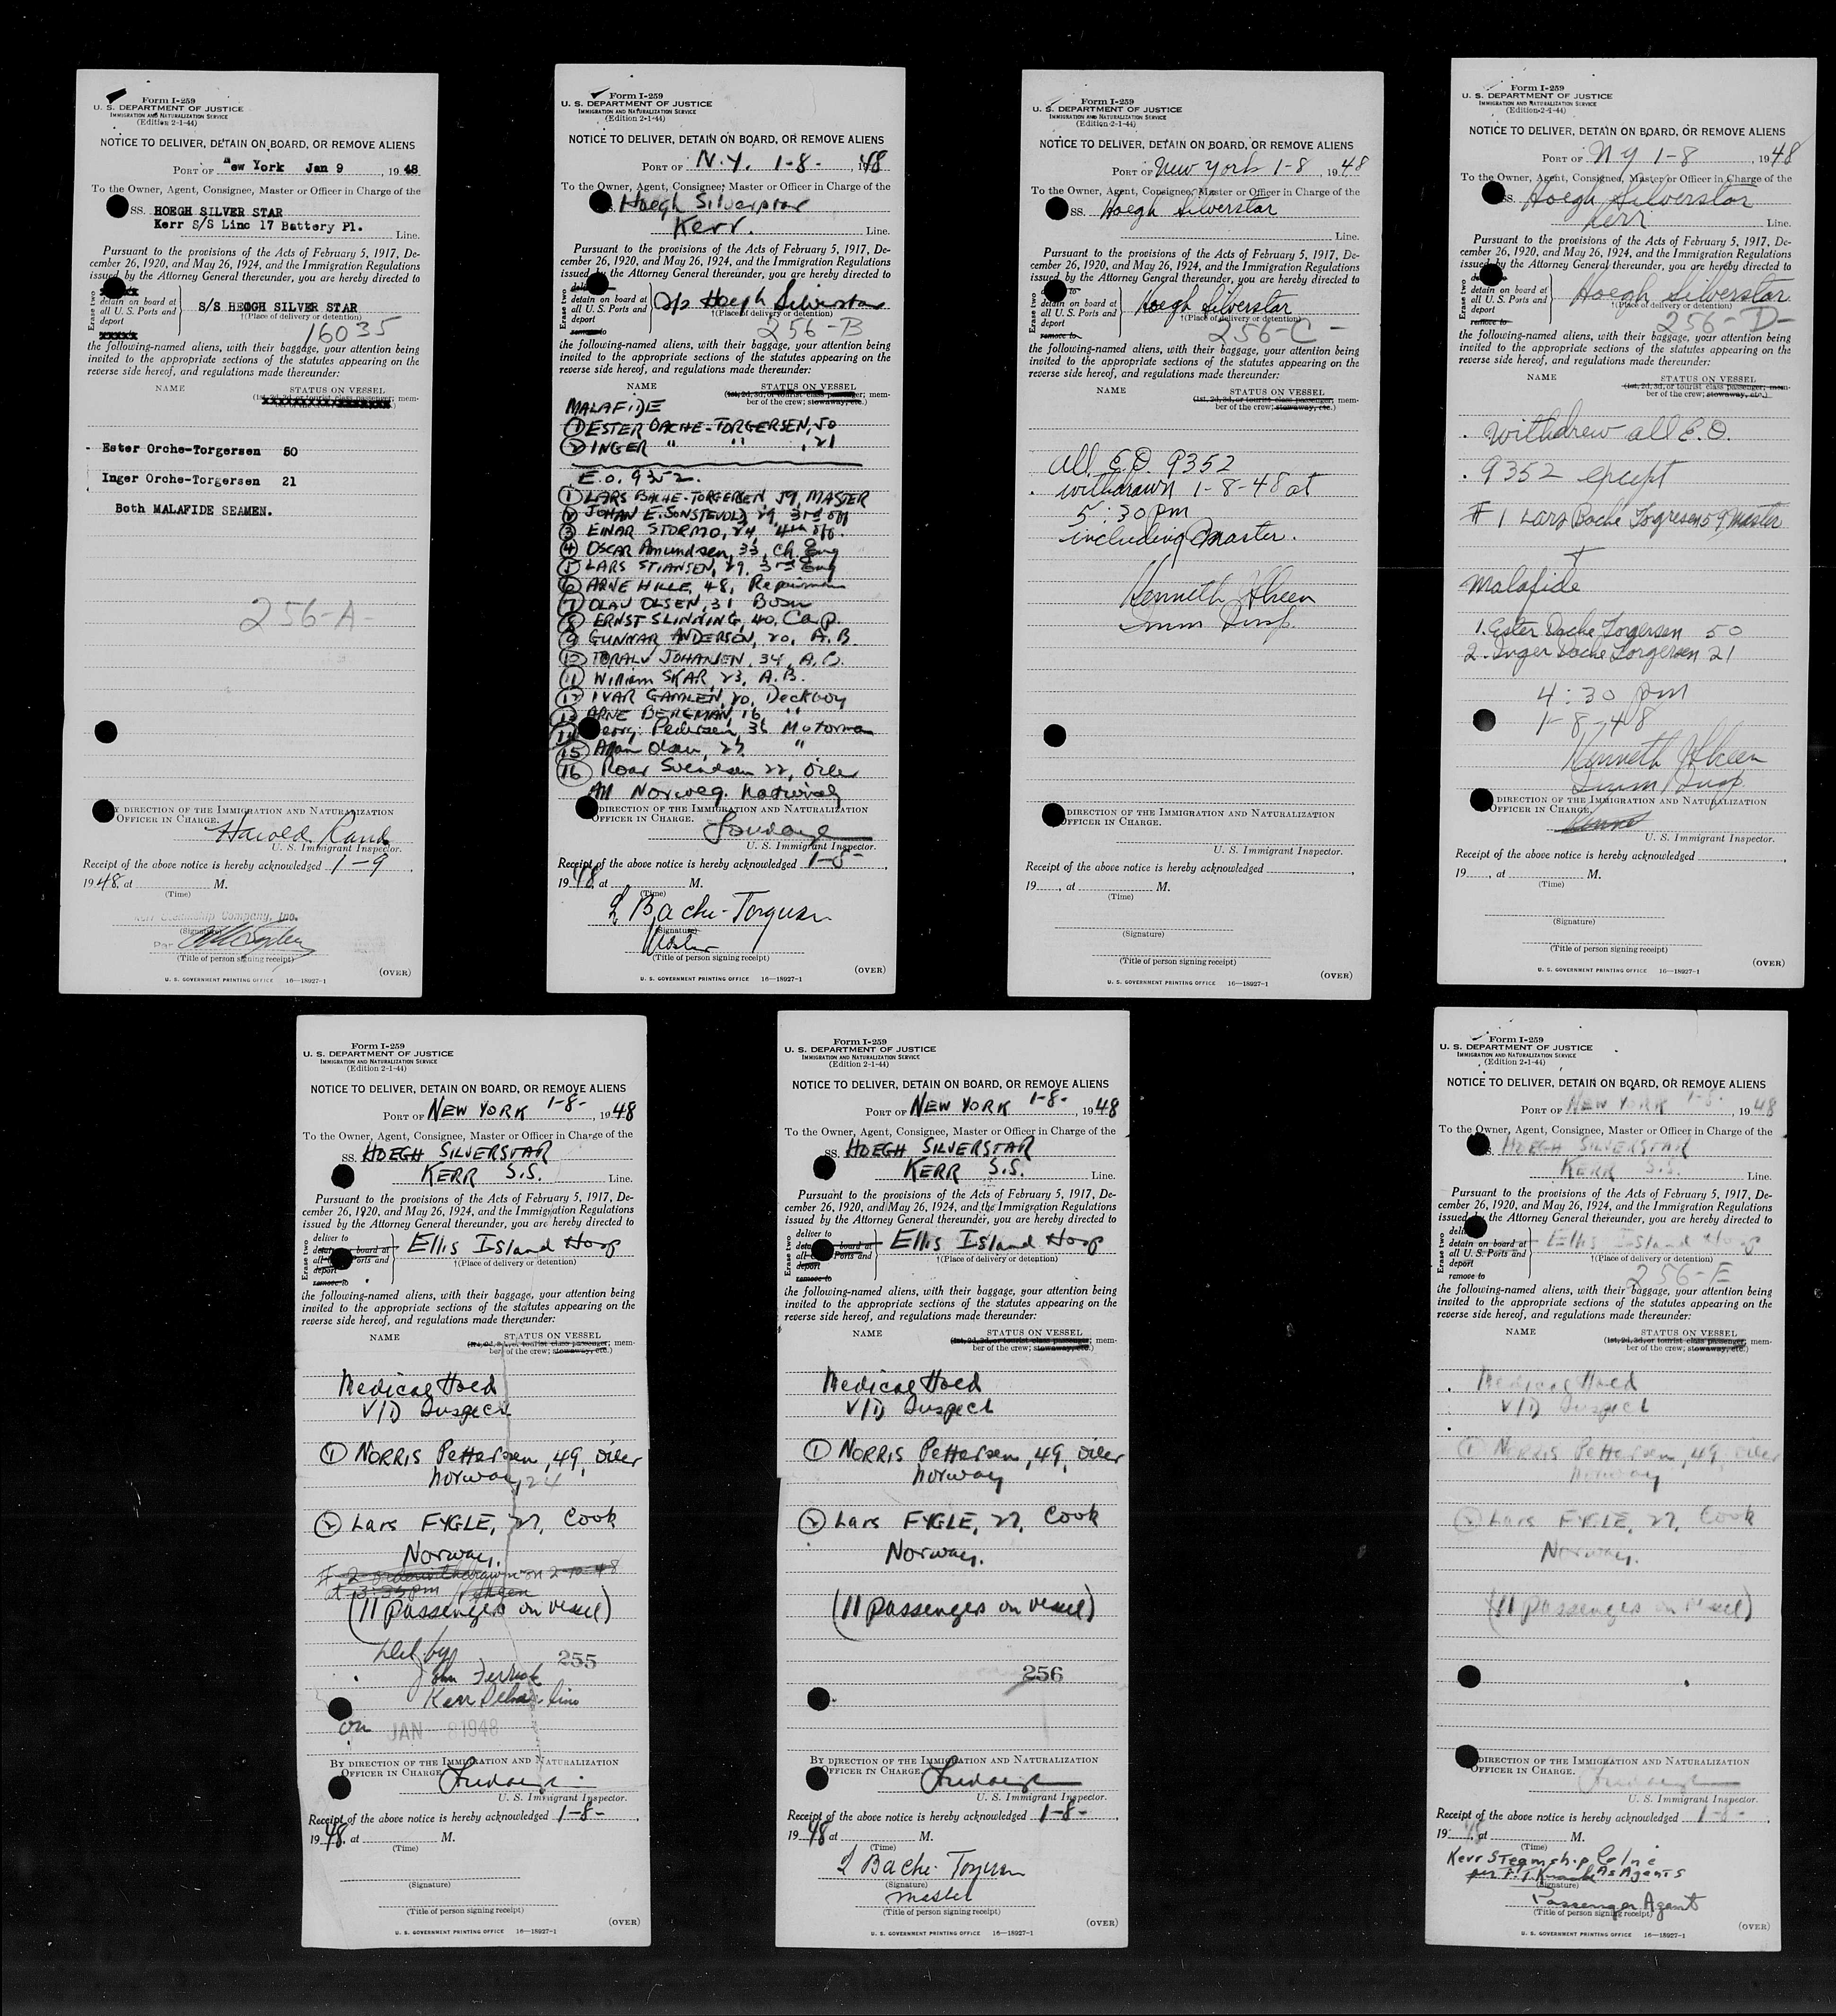 Form I-259
U. S. DEPARTMENT OF JUSTICE
IMMIGRATION AND NATURALIZATION SERVICE
(Edition 2-1-44)
NOTICE TO DELIVER, DETAIN ON BOARD, OR REMOVE ALIENS
PORT OF New York Jan 9, 1948
To the Owner, Agent, Consignee, Master or Officer in Charge of the
SS. HOEGH SILVER STAR
Kerr S/S Linc 17 Battery Pl. Line.
Pursuant to the provisions of the Acts of February 5, 1917, De-
cember 26, 1920, and May 26, 1924, and the Immigration Regulations
issued by the Attorney General thereunder, you are hereby directed to
Erase two
detain on board at
all U. S. Ports and
deport
S/S HEOGH SILVER STAR
†(Place of delivery or detention)
16035
the following-named aliens, with their baggage, your attention being
invited to the appropriate sections of the statutes appearing on the
reverse side hereof, and regulations made thereunder:
NAME STATUS ON VESSEL
Ester Orche-Torgersen 50
Inger Orche-Torgersen 21
Both MALAFIDE SEAMEN.
256-A-
BY DIRECTION OF THE IMMIGRATION AND NATURALIZATION
OFFICER IN CHARGE.
Harold Rand
U. S. Immigrant Inspector.
Receipt of the above notice is hereby acknowledged 1-9,
1948, at M.
(Time)
Kerr Steamship Company, Inc.
(Signature)
Per
(Title of person signing receipt)
(OVER)
U. S. GOVERNMENT PRINTING OFFICE 16—18927-1
Form I-259
U. S. DEPARTMENT OF JUSTICE
IMMIGRATION AND NATURALIZATION SERVICE
(Edition 2-1-44)
NOTICE TO DELIVER, DETAIN ON BOARD, OR REMOVE ALIENS
PORT OF N.Y. 1-8-, 1948
To the Owner, Agent, Consignee, Master or Officer in Charge of the
Hoegh Silverstar
Kerr.
Line.
Pursuant to the provisions of the Acts of February 5, 1917, De-
cember 26, 1920, and May 26, 1924, and the Immigration Regulations
issued by the Attorney General thereunder, you are hereby directed to
Erase two
deliver to
detain on board at
all U. S. Ports and
deport
remove to
Hoegh Silverstar
†(Place of delivery or detention)
256-B
the following-named aliens, with their baggage, your attention being
invited to the appropriate sections of the statutes appearing on the
reverse side hereof, and regulations made thereunder:
NAME STATUS ON VESSEL
(1st, 2d, 3d, or tourist class passenger; mem-
ber of the crew; stowaway, etc.)
MALAFIDE
① ESTER DACHE-TORGERSEN, 50
② INGER " " , 21
E.O. 9352.
① LARS BACHE-TORGERSEN 59, MASTER
② JOHAN E. SONSTEVOLD, 29, 3rd off
③ EINAR STORMO, 24, 4th Off.
④ OSCAR Amundsen, 33, Ch. Eng
⑤ LARS STIANSEN, 29, 3rd Eng
⑥ ARNE HILLE, 48, Repairman
⑦ OLAV OLSEN, 31 Bosn
⑧ ERNST SLINNING, 40, Carp.
⑨ GUNNAR ANDERSON, 20, A.B.
⑩ TORALV JOHANSEN, 34, A.B.
⑪ William SKAR, 23, A.B.
⑫ IVAR GAMLEN, 20, Deckboy
⑬ ARNE BERGMAN, 16 "
⑭ Georg Pedersen, 36 Motorman
⑮ Olsen, 25 "
⑯ Roar Svendsen 22, Oiler
All Norweg. nationals
BY DIRECTION OF THE IMMIGRATION AND NATURALIZATION
OFFICER IN CHARGE.
U. S. Immigrant Inspector.
Receipt of the above notice is hereby acknowledged 1-8-
1948, at M.
(Time)
L Bache-Torgersen
(Signature)
Master
(Title of person signing receipt)
(OVER)
U. S. GOVERNMENT PRINTING OFFICE 16—18927-1
Form I-259
U. S. DEPARTMENT OF JUSTICE
IMMIGRATION AND NATURALIZATION SERVICE
(Edition 2-1-44)
NOTICE TO DELIVER, DETAIN ON BOARD, OR REMOVE ALIENS
PORT OF New York 1-8, 1948
To the Owner, Agent, Consignee, Master or Officer in Charge of the
SS. Hoegh Silverstar
Line.
Pursuant to the provisions of the Acts of February 5, 1917, De-
cember 26, 1920, and May 26, 1924, and the Immigration Regulations
issued by the Attorney General thereunder, you are hereby directed to
Erase two
detain on board at
all U. S. Ports and
deport
remove to
Hoegh Silverstar
†(Place of delivery or detention)
256-C-
the following-named aliens, with their baggage, your attention being
invited to the appropriate sections of the statutes appearing on the
reverse side hereof, and regulations made thereunder:
NAME STATUS ON VESSEL
(1st, 2d, 3d, or tourist class passenger; mem-
ber of the crew; stowaway, etc.)
all E.O. 9352
withdrawn 1-8-48 at
5:30 pm
including master.
Kenneth
Imm Insp.
BY DIRECTION OF THE IMMIGRATION AND NATURALIZATION
OFFICER IN CHARGE.
U. S. Immigrant Inspector.
Receipt of the above notice is hereby acknowledged
19 , at M.
(Time)
(Signature)
(Title of person signing receipt)
(OVER)
U. S. GOVERNMENT PRINTING OFFICE 16—18927-1
Form I-259
U. S. DEPARTMENT OF JUSTICE
IMMIGRATION AND NATURALIZATION SERVICE
(Edition 2-1-44)
NOTICE TO DELIVER, DETAIN ON BOARD, OR REMOVE ALIENS
PORT OF N Y 1-8, 1948
To the Owner, Agent, Consignee, Master or Officer in Charge of the
SS. Hoegh Silverstar
Kerr Line.
Pursuant to the provisions of the Acts of February 5, 1917, De-
cember 26, 1920, and May 26, 1924, and the Immigration Regulations
issued by the Attorney General thereunder, you are hereby directed to
Erase two
deliver to
detain on board at
all U. S. Ports and
deport
remove to
Hoegh Silverstar
†(Place of delivery or detention)
256-D-
the following-named aliens, with their baggage, your attention being
invited to the appropriate sections of the statutes appearing on the
reverse side hereof, and regulations made thereunder:
NAME STATUS ON VESSEL
(1st, 2d, 3d, or tourist class passenger; mem-
ber of the crew; stowaway, etc.)
withdrew all E.O.
9352 except
# 1 Lars Bache Togresen 59 master
+
Malafide
1. Ester Dache Torgersen 50
2. Inger Dache Torgersen 21
4:30 pm
1-8-48
Kenneth
Imm Insp.
BY DIRECTION OF THE IMMIGRATION AND NATURALIZATION
OFFICER IN CHARGE.
U. S. Immigrant Inspector.
Receipt of the above notice is hereby acknowledged
19 , at M.
(Time)
(Signature)
(Title of person signing receipt)
(OVER)
U. S. GOVERNMENT PRINTING OFFICE 16—18927-1
Form I-259
U. S. DEPARTMENT OF JUSTICE
IMMIGRATION AND NATURALIZATION SERVICE
(Edition 2-1-44)
NOTICE TO DELIVER, DETAIN ON BOARD, OR REMOVE ALIENS
PORT OF NEW YORK 1-8-, 1948
To the Owner, Agent, Consignee, Master or Officer in Charge of the
SS. HOEGH SILVERSTAR
KERR S.S. Line.
Pursuant to the provisions of the Acts of February 5, 1917, De-
cember 26, 1920, and May 26, 1924, and the Immigration Regulations
issued by the Attorney General thereunder, you are hereby directed to
Erase two
deliver to
detain on board at
all U. S. Ports and
deport
remove to
Ellis Island Hosp
†(Place of delivery or detention)
the following-named aliens, with their baggage, your attention being
invited to the appropriate sections of the statutes appearing on the
reverse side hereof, and regulations made thereunder:
NAME STATUS ON VESSEL
(1st, 2d, 3d, or tourist class passenger; mem-
ber of the crew; stowaway, etc.)
Medical Hold
V/D Suspect
① NORRIS Pettersen, 49, oiler
Norway, 24
② Lars FYGLE, 27, Cook
Norway.
# 2 order withdrawn on 2-10-48
at 3:35 pm
(11 passengers on vessel)
Del by
255
John
Kerr Line
on JAN 8 1948
BY DIRECTION OF THE IMMIGRATION AND NATURALIZATION
OFFICER IN CHARGE
U. S. Immigrant Inspector.
Receipt of the above notice is hereby acknowledged 1-8-,
1948, at M.
(Time)
(Signature)
(Title of person signing receipt)
(OVER)
U. S. GOVERNMENT PRINTING OFFICE 16—18927-1
Form I-259
U. S. DEPARTMENT OF JUSTICE
IMMIGRATION AND NATURALIZATION SERVICE
(Edition 2-1-44)
NOTICE TO DELIVER, DETAIN ON BOARD, OR REMOVE ALIENS
PORT OF NEW YORK 1-8-, 1948
To the Owner, Agent, Consignee, Master or Officer in Charge of the
SS. HOEGH SILVERSTAR
KERR S.S. Line.
Pursuant to the provisions of the Acts of February 5, 1917, De-
cember 26, 1920, and May 26, 1924, and the Immigration Regulations
issued by the Attorney General thereunder, you are hereby directed to
Erase two
deliver to
detain on board at
all U. S. Ports and
deport
remove to
Ellis Island Hosp
†(Place of delivery or detention)
the following-named aliens, with their baggage, your attention being
invited to the appropriate sections of the statutes appearing on the
reverse side hereof, and regulations made thereunder:
NAME STATUS ON VESSEL
(1st, 2d, 3d, or tourist class passenger; mem-
ber of the crew; stowaway, etc.)
Medical Hold
V/D Suspect
① NORRIS Pettersen, 49, oiler
Norway
② Lars FYGLE, 27, Cook
Norway.
(11 passengers on vessel)
256
BY DIRECTION OF THE IMMIGRATION AND NATURALIZATION
OFFICER IN CHARGE.
U. S. Immigrant Inspector.
Receipt of the above notice is hereby acknowledged 1-8-,
1948 at M.
(Time)
L Bache-Torgersen
(Signature)
master
(Title of person signing receipt)
(OVER)
U. S. GOVERNMENT PRINTING OFFICE 16—18927-1
Form I-259
U. S. DEPARTMENT OF JUSTICE
IMMIGRATION AND NATURALIZATION SERVICE
(Edition 2-1-44)
NOTICE TO DELIVER, DETAIN ON BOARD, OR REMOVE ALIENS
PORT OF NEW YORK 1-8-, 1948
To the Owner, Agent, Consignee, Master or Officer in Charge of the
SS. HOEGH SILVERSTAR
KERR S.S. Line.
Pursuant to the provisions of the Acts of February 5, 1917, De-
cember 26, 1920, and May 26, 1924, and the Immigration Regulations
issued by the Attorney General thereunder, you are hereby directed to
Erase two
deliver to
detain on board at
all U. S. Ports and
deport
remove to
Ellis Island Hosp
†(Place of delivery or detention)
256-E
the following-named aliens, with their baggage, your attention being
invited to the appropriate sections of the statutes appearing on the
reverse side hereof, and regulations made thereunder:
NAME STATUS ON VESSEL
(1st, 2d, 3d, or tourist class passenger; mem-
ber of the crew; stowaway, etc.)
Medical Hold
V/D Suspect
① NORRIS Pettersen, 49, oiler
Norway
② Lars FYGLE, 27, Cook
Norway.
(11 passengers on vessel)
BY DIRECTION OF THE IMMIGRATION AND NATURALIZATION
OFFICER IN CHARGE.
U. S. Immigrant Inspector.
Receipt of the above notice is hereby acknowledged 1-8-,
1948, at M.
(Time)
Kerr Steamship Co Inc
As Agents
(Signature)
Passenger Agent
(Title of person signing receipt)
(OVER)
U. S. GOVERNMENT PRINTING OFFICE 16—18927-1